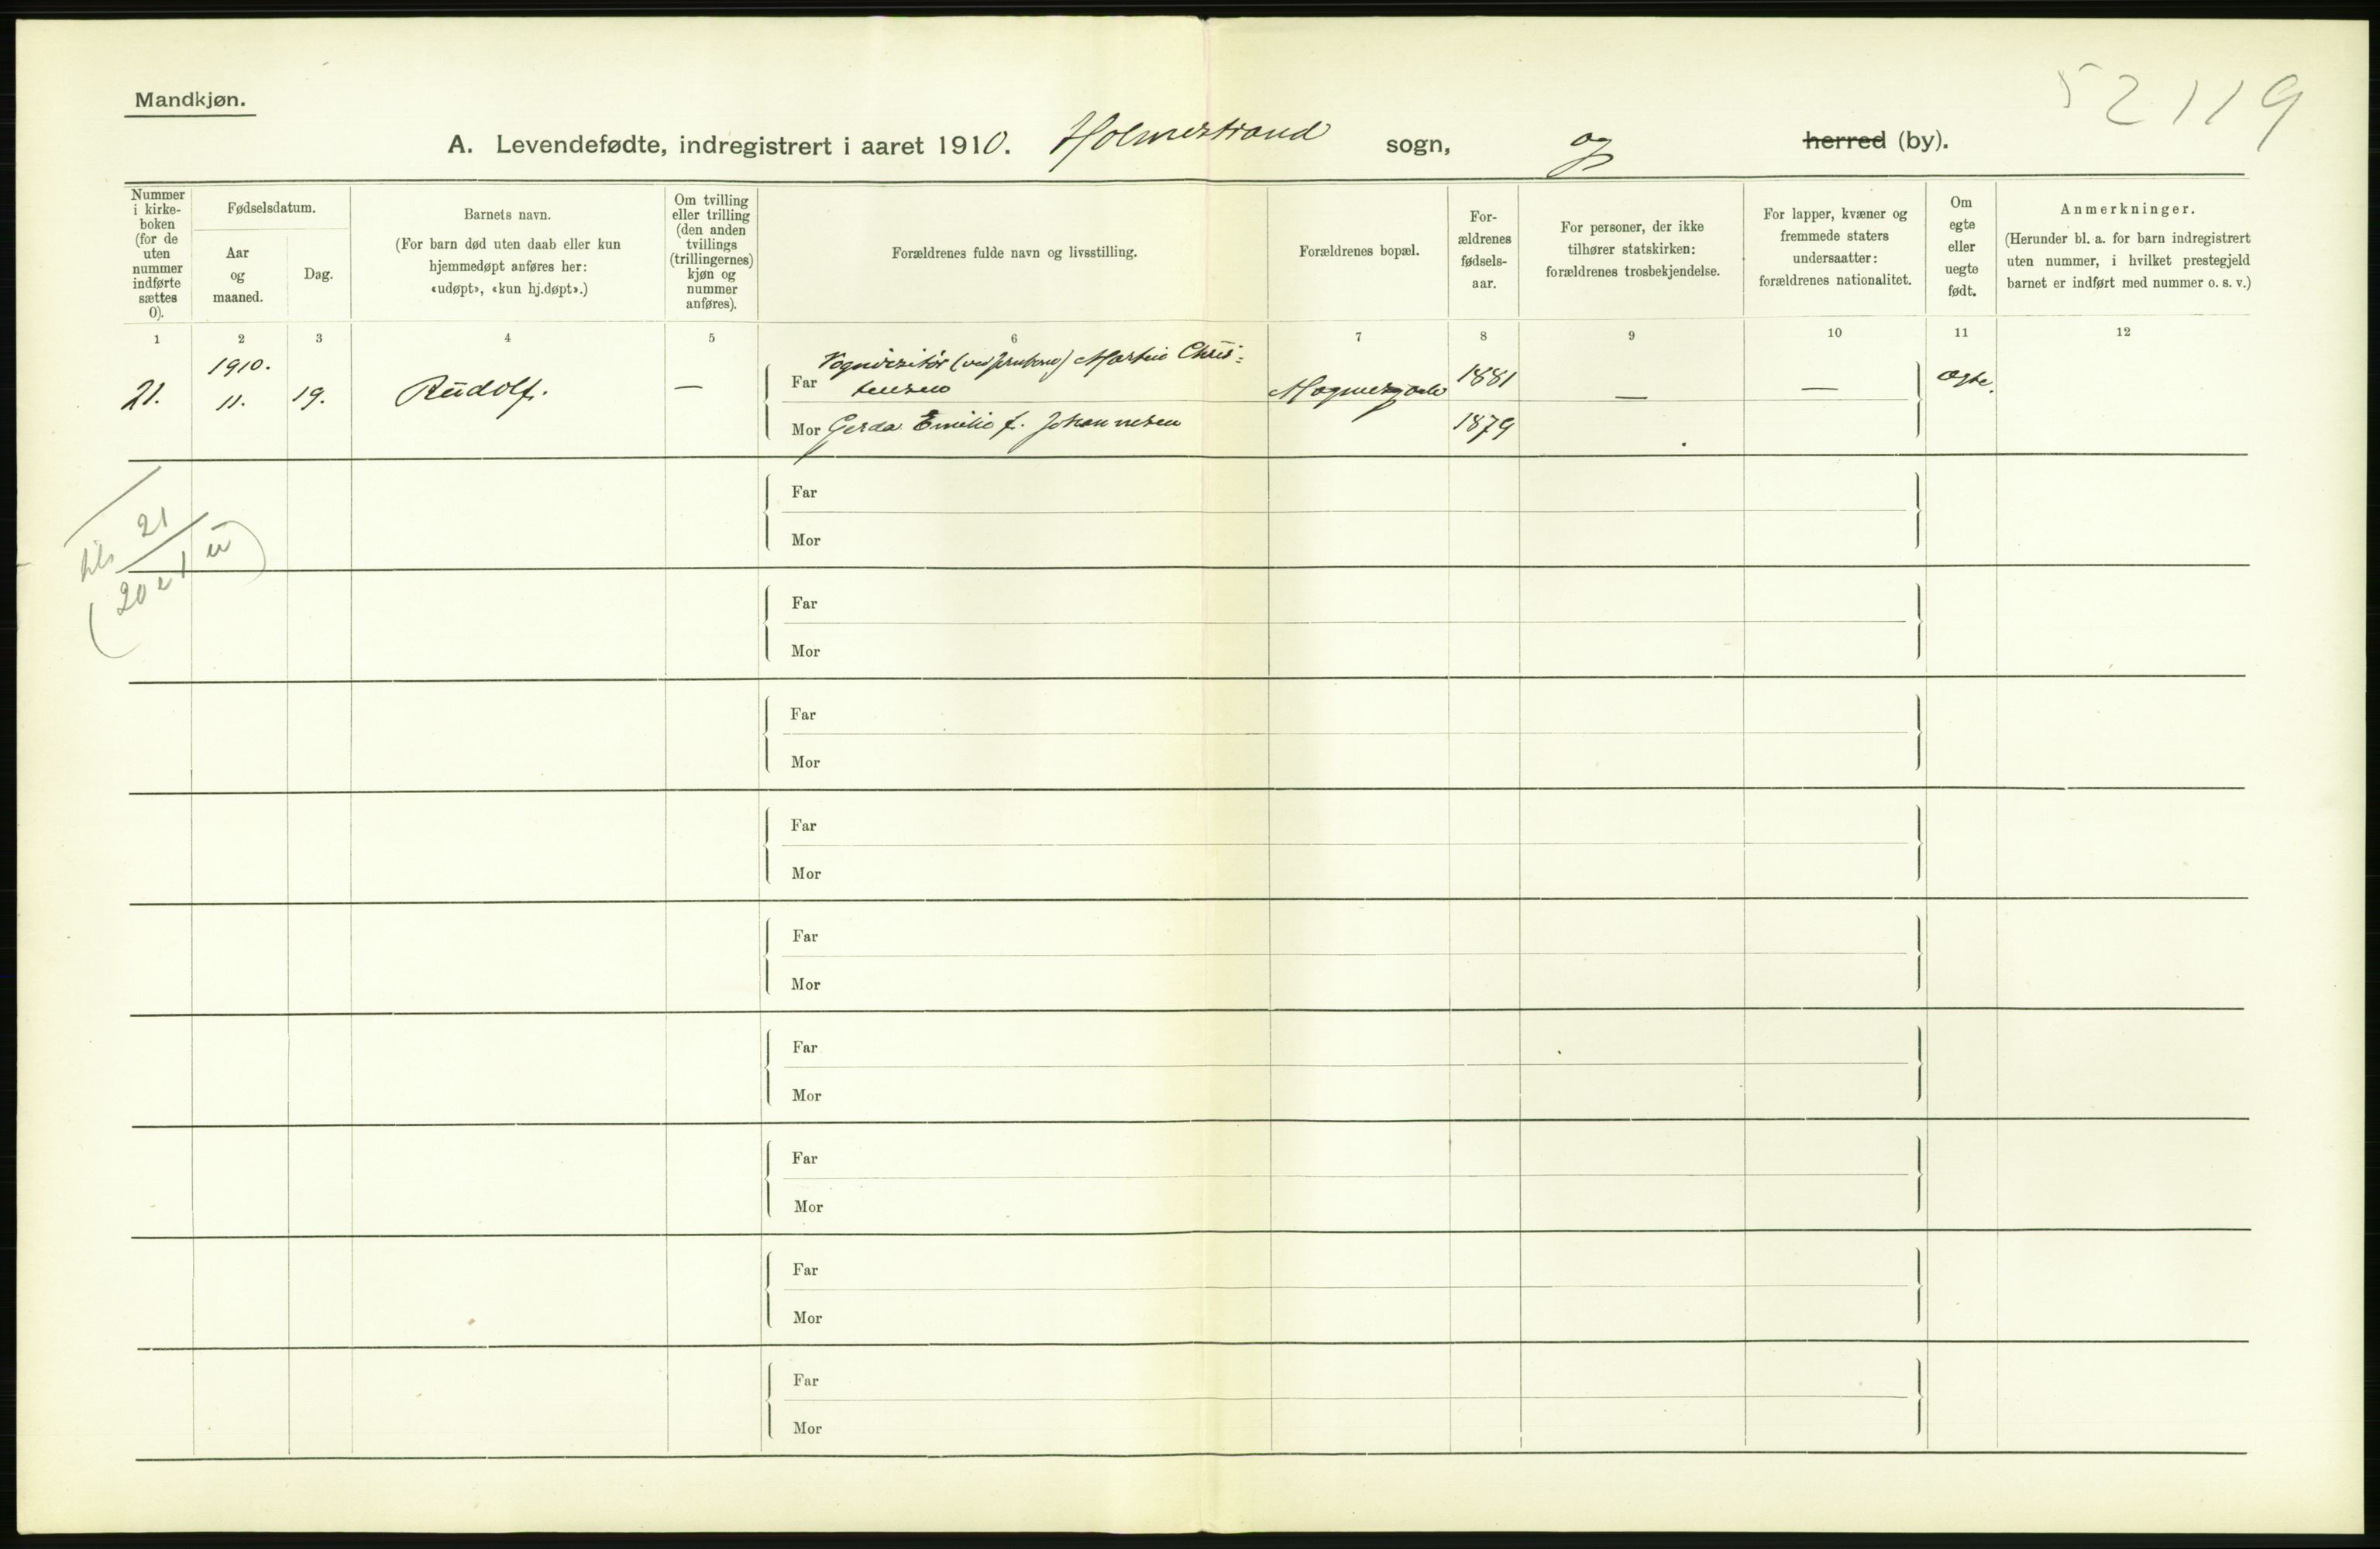 52119
Mandkjøn.
A. Levendefødte, indregistrert i aaret 1910. Holmestrand sogn, og herred (by).
Nummer i kirke- boken (for de uten nummer indførte sættes 0).
Fødselsdatum.
Aar og maaned.
Dag.
Barnets navn.
(For barn død uten daab eller kun hjemmedøpt anføres her: «udøpt», «kun hj.døpt».)
Om tvilling eller trilling (den anden tvillings (trillingernes) kjøn og nummer anføres).
Forældrenes fulde navn og livsstilling.
Forældrenes bopæl.
For- ældrenes fødsels- aar.
For personer, der ikke tilhører statskirken: forældrenes trosbekjendelse.
For lapper, kvæner og fremmede staters undersaatter: forældrenes nationalitet.
Om egte eller uegte født.
Anmerkninger.
(Herunder bl. a. for barn indregistrert uten nummer, i hvilket prestegjeld barnet er indført med nummer o. s. v.)
1 2 3 4 5 6 7 8 9 10 11 12
21. 1910. 11. 19. Rudolf. —
Far Vognvisitør (ved Jernbane) Martin Chris-
tensen
Mor Gerda Emilie f. Johannesen
1881
1879
— — egte.
21
20
Far
Mor
Far
Mor
Far
Mor
Far
Mor
Far
Mor
Far
Mor
Far
Mor
Far
Mor
Far
Mor